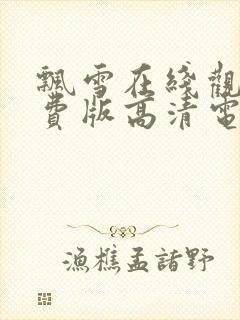 飄雪在綫觀
費版高清電
漁樵孟諸野